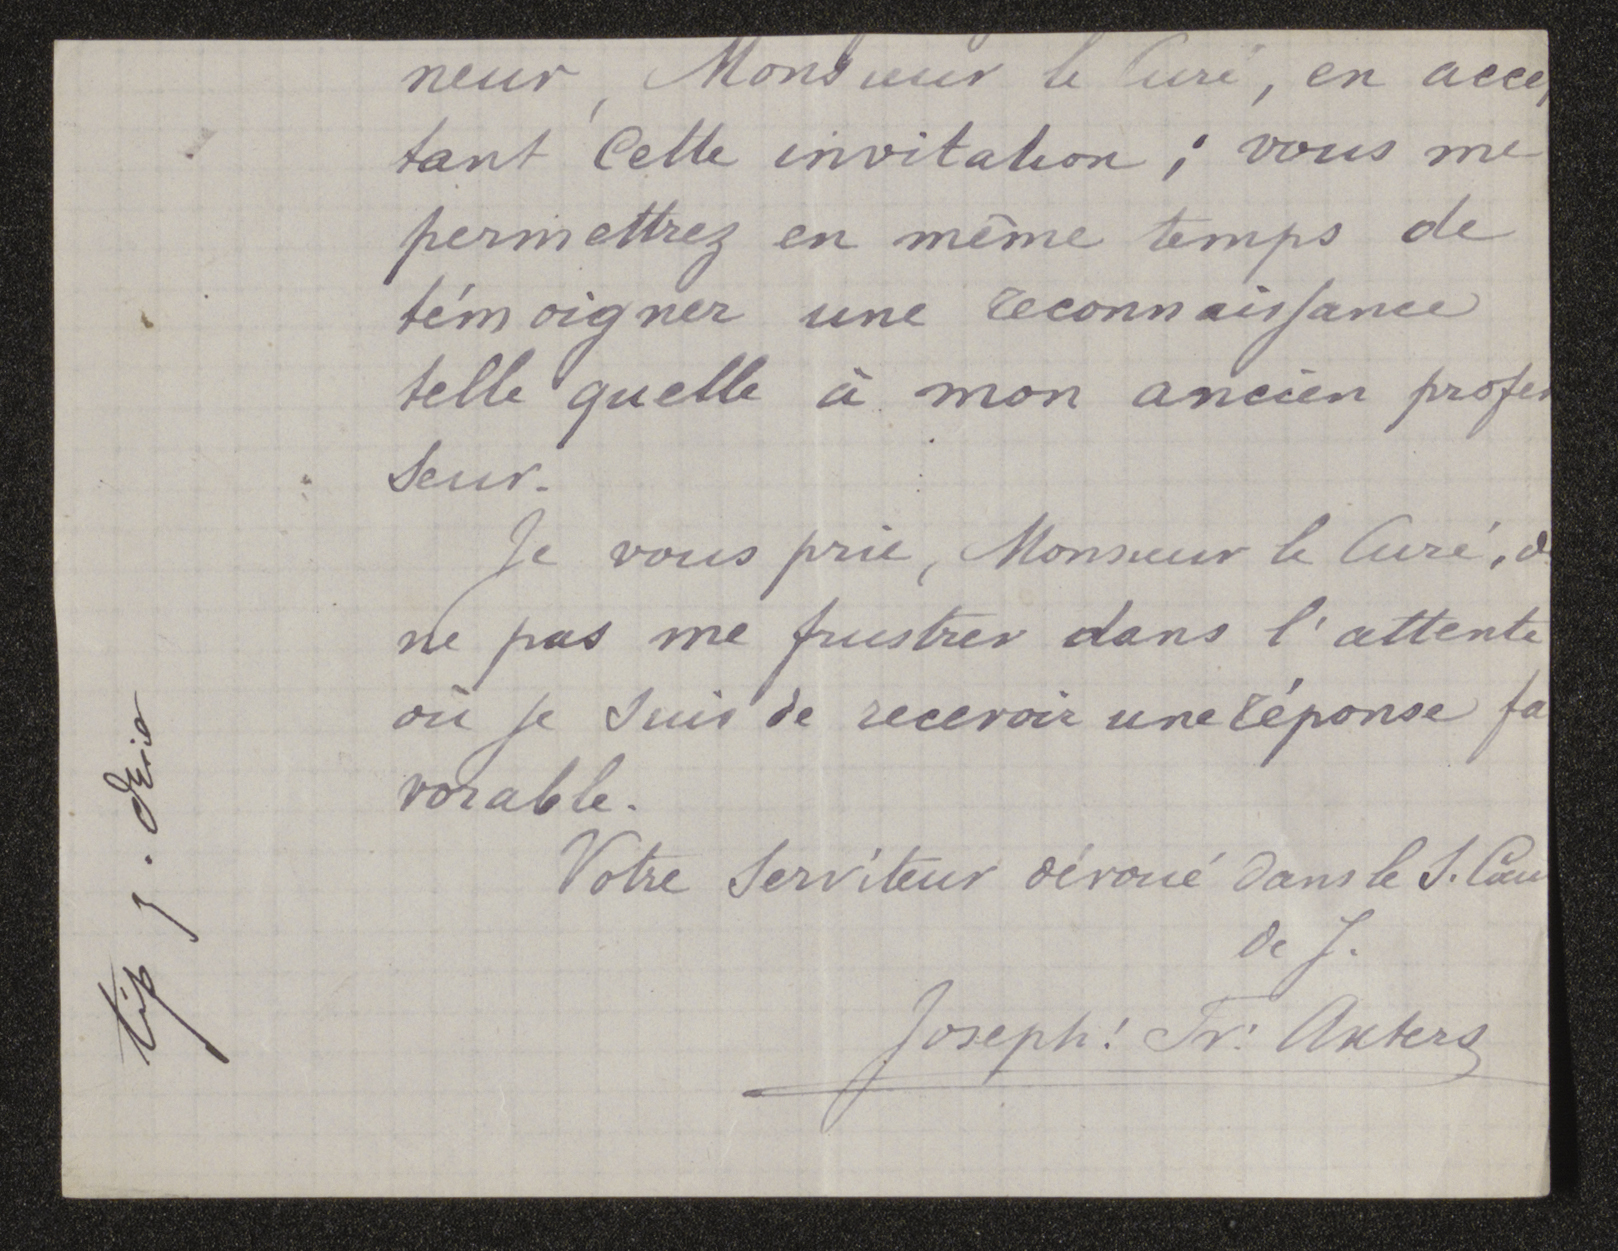 neur, Monsieur le Curé, en accep
tant Cette invitation; vous me
permettrez en même temps de
témoigner une reconnaissance
telle quelle à mon ancien profes
seur.
Je vous prie, Monsieur le Curé, d
ne pas me frustrer dans l'attente
où je suis de recevoir une réponse fa
vorable.
Votre Serviteur dévoué dans le S. Cœu
de J.
Joseph! Fr: Axters
tip